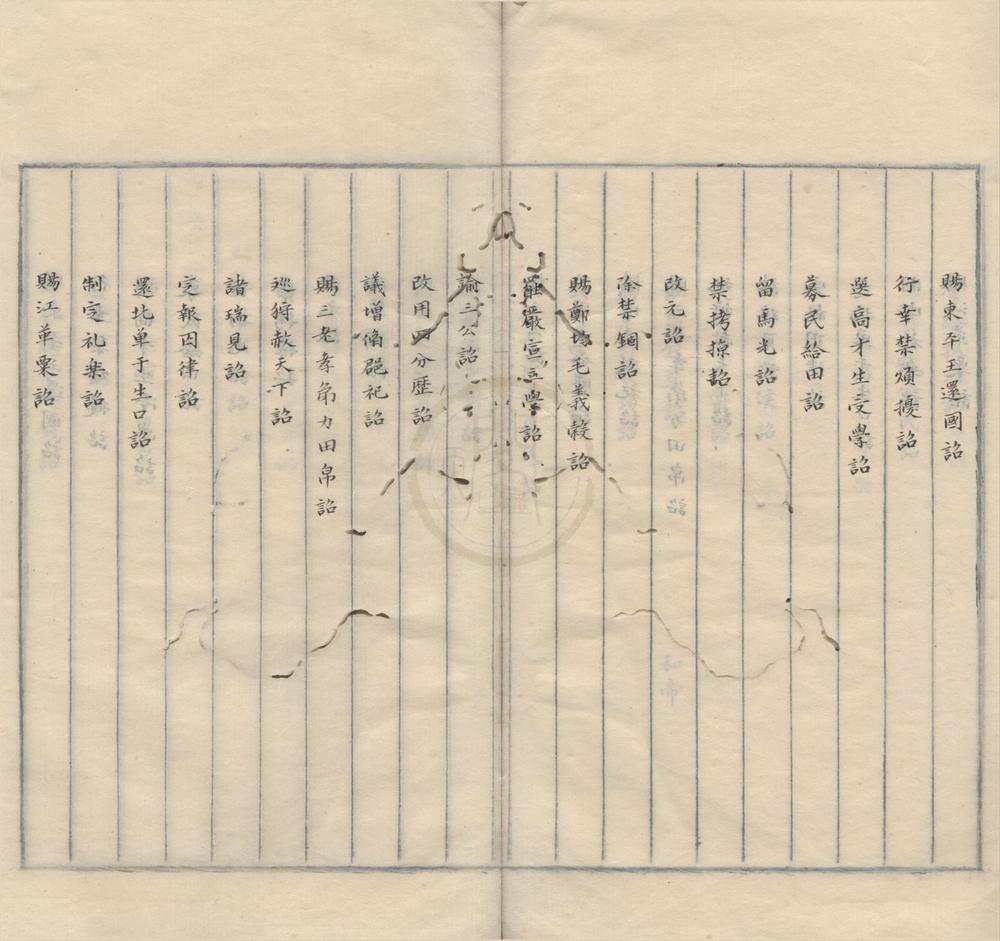 賜東平王還國詔
行幸禁煩擾詔
選高才生受學詔
募民給田詔
留馬光詔
禁拷掠詔
改元詔
除禁錮詔
賜鄭均毛義穀詔
嚴宣立學詔
諭三公詔
改用四分歷詔
議增脩羣祀詔
賜三老孝弟力田帛詔
巡狩赦天下詔
諸瑞見詔
定報囚律詔
還北单于生口詔
制定礼楽詔
賜江革粟詔